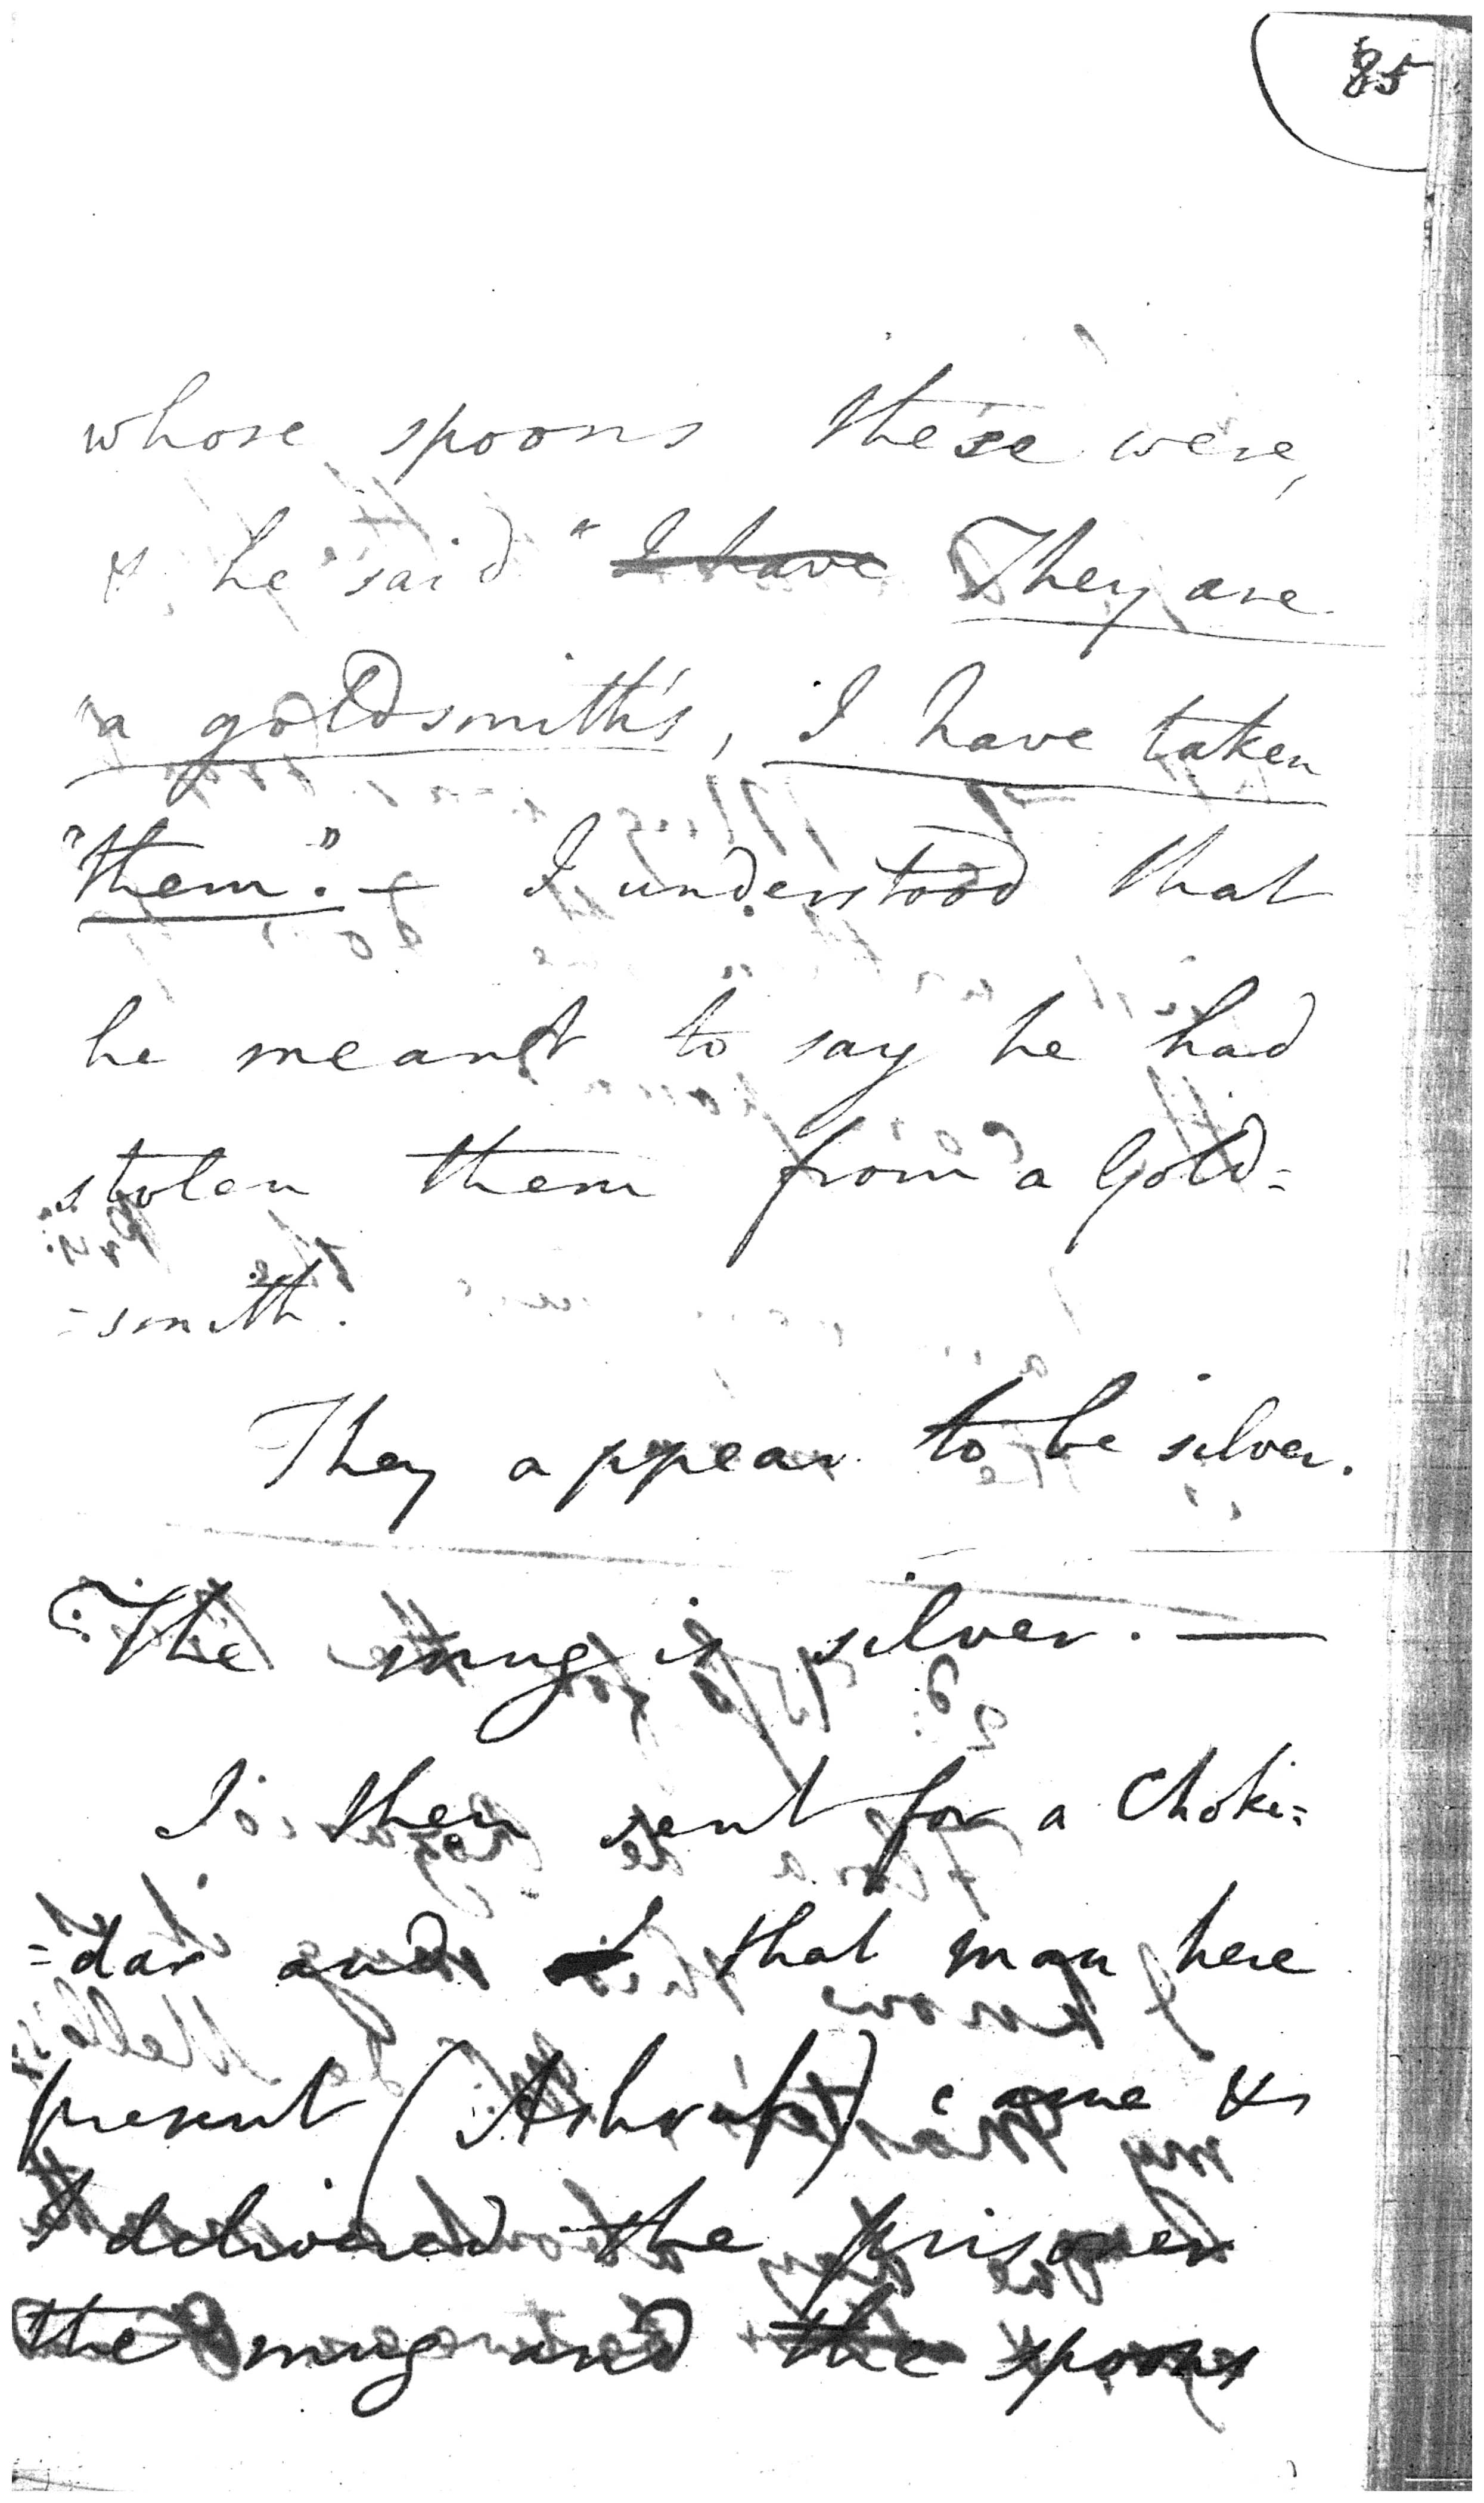 85
whose spoons these were,
& he said " I have They are
"a goldsmith's, I have taken
"them". — I understood that
he meant to say he had
stolen them from a Gold=
=smith.
They appear to be silver.
The mug is silver. —
I then sent for a Choki=
=dar and that man here
present (Ashruf) came &
I delivered the prisoner
the mug and the spoons